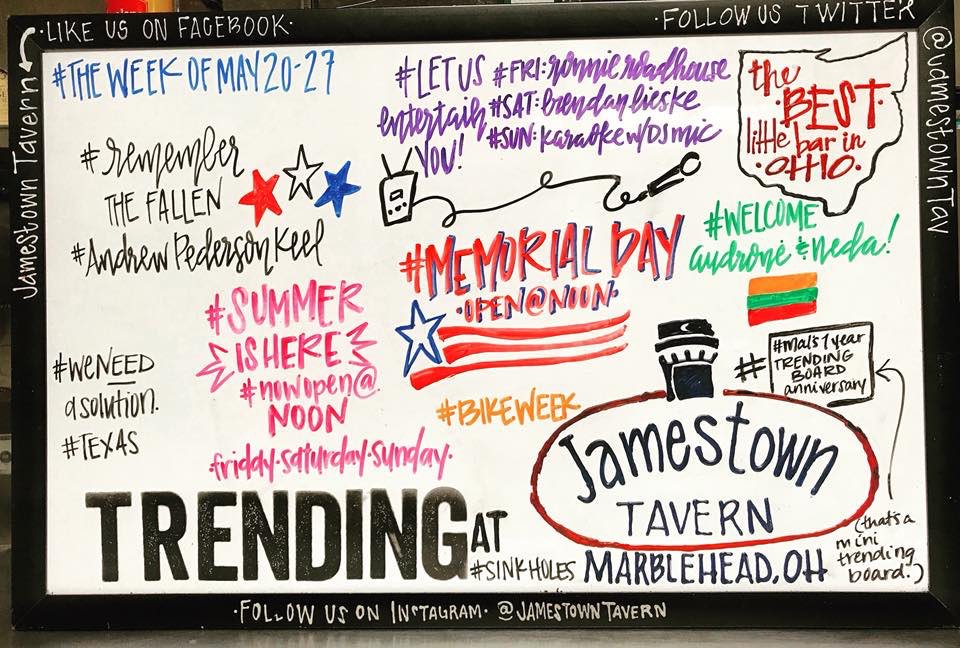 ·LIKE US ON FACEBOOK·
·FOLLOW US TWITTER
Jamestown Tavern
@JamestownTav
#THE WEEK OF MAY 20-27
#LET US
entertain
YOU!
#FRI: ronnie roadhouse
#SAT: brendan lieske
#SUN: karaoke w/DS mic
the
·BEST·
little bar in
·OHIO·
#remember
THE FALLEN
#Andrew Pederson Keel
#MEMORIAL DAY
·OPEN@NOON·
#WELCOME
audronė & neda!
#SUMMER
IS HERE
#nowopen@
NOON
·friday·saturday·sunday·
#weNEED
a solution.
#TEXAS
#BIKEWEEK
#
#mal's 1 year
TRENDING
BOARD
anniversary
(that's a
mini
trending
board.)
Jamestown
TAVERN
MARBLEHEAD, OH
TRENDING AT
#SINKHOLES
·FOLLOW US ON INSTAGRAM· @JAMESTOWNTAVERN